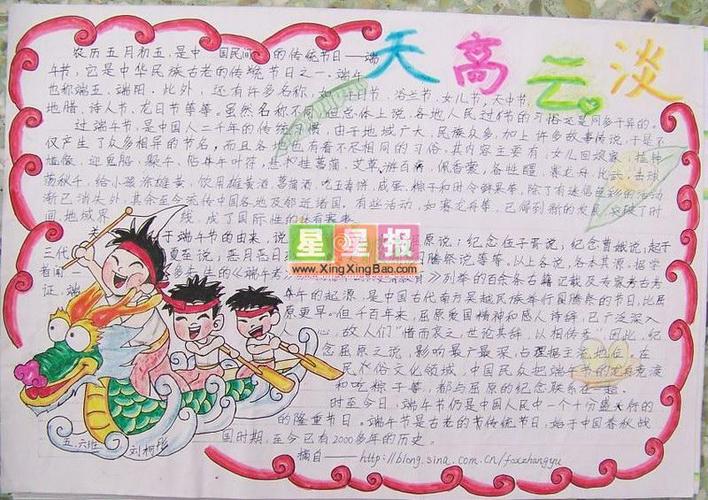 天高云淡
农历五月初五,是中国民间的传统节日——端
午节,它是中华民族古老的传统节日之一。端午
也称端五、端阳。此外,还有许多名称,如:午日节、浴兰节、女儿节、天中节、
地腊、诗人节、龙日节等等。虽然名称不同,但总体上说,各地人民过节的习俗还是同多于异的。
过端午节,是中国人二千年的传统习惯,由于地域广大,民族众多,加上许多故事传说,于是不
仅产生了众多相异的节名,而且各地也有着不尽相同的习俗。其内容主要有:女儿回娘家,挂钟
馗像,迎鬼船、躲午、帖午叶符,悬挂菖蒲、艾草,游百病,佩香囊,备牲醴,赛龙舟,比武,击球,
荡秋千,给小孩涂雄黄,饮用雄黄酒、菖蒲酒,吃五毒饼、咸蛋、粽子和时令鲜果等,除了有迷信色彩的活动
渐已消失外,其余至今流传中国各地及邻近诸国。有些活动,如赛龙舟等,已得到新的发展,突破了时
间、地域界线,成了国际性的体育赛事。
关于端午节的由来,说
原说;纪念伍子胥说;纪念曹娥说;起于
三代夏至说;恶月恶日
图腾祭说等等。以上各说,各本其源。据学
者闻一多先生的《端午考》
列举的百余条古籍记载及专家考古考
证,端午的起源,是中国古代南方吴越民族举行图腾祭的节日,比屈
原更早。但千百年来,屈原的爱国精神和感人诗辞,已广泛深入
人心,故人们“惜而哀之,世论其辞,以相传焉”,因此,纪
念屈原之说,影响最广最深,占据主流地位。在
民俗文化领域,中国民众把端午节的龙舟竞渡
和吃粽子等,都与屈原的纪念联系在一起。
时至今日,端午节仍是中国人民中一个十分盛大行的
的隆重节日。端午节是古老的传统节日,始于中国春秋战
国时期,至今已有2000多年的历史。
摘自——http://blong.sina.com.cn/foxzhangyu
五、六班
星星报
www.XingXingBao.com